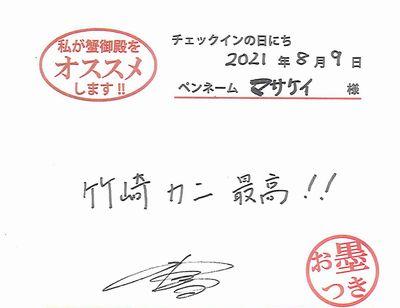 私が蟹御殿を
オススメ
します!!
チェックインの日にち
2021年8月9日
ペンネーム マサケイ 様
竹崎カニ最高!!
お墨
つき